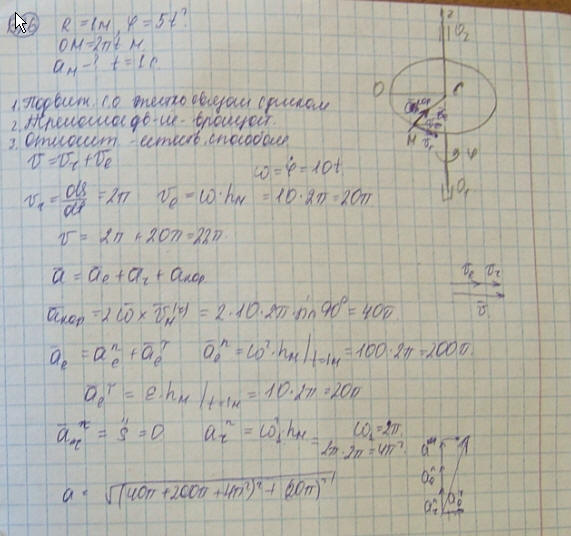 R = 1м, φ = 5t²
OM = 2πt м
aм - ? t = 1c
1. Подвиж. с.о жестко связан с диском
2. Переносное дв-ие - вращат.
3. Относит. - естеств. способом
v̄ = v̄r + v̄e
ω = φ̇ = 10t
vr = ds/dt = 2π ve = ω · hм = 10 · 2π = 20π
v = 2π + 20π = 22π
ā = āe + ār + aкор
āкор = 2ω̄ × v̄м⁽ʳ⁾ = 2 · 10 · 2π · sin 90° = 40π
āe = āeⁿ + āeᵗ āeⁿ = ω² · hм | t=1м = 100 · 2π = 200π
āeᵗ = ε · hм | t=1м = 10 · 2π = 20π
= s̈ = 0 arⁿ = ω² · hм = ω = 2π
2π · 2π = 4π²
a = √((40π + 200π + 4π²)² + (20π)²)
O
C
M
φ
O₂
O₁
v̄e v̄r
v̄